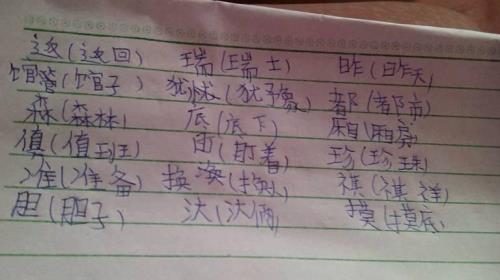 返(返回) 瑞(瑞士) 昨(昨天)
馆(馆子) 犹(犹豫) 都(都市)
森(森林) 底(底下) 厢(厢房)
值(值班) 盯(盯着) 珍(珍珠)
准(准备) 换(换) 祺(祺祥)
胆(胆子) 达(达俩) 摸(摸底)